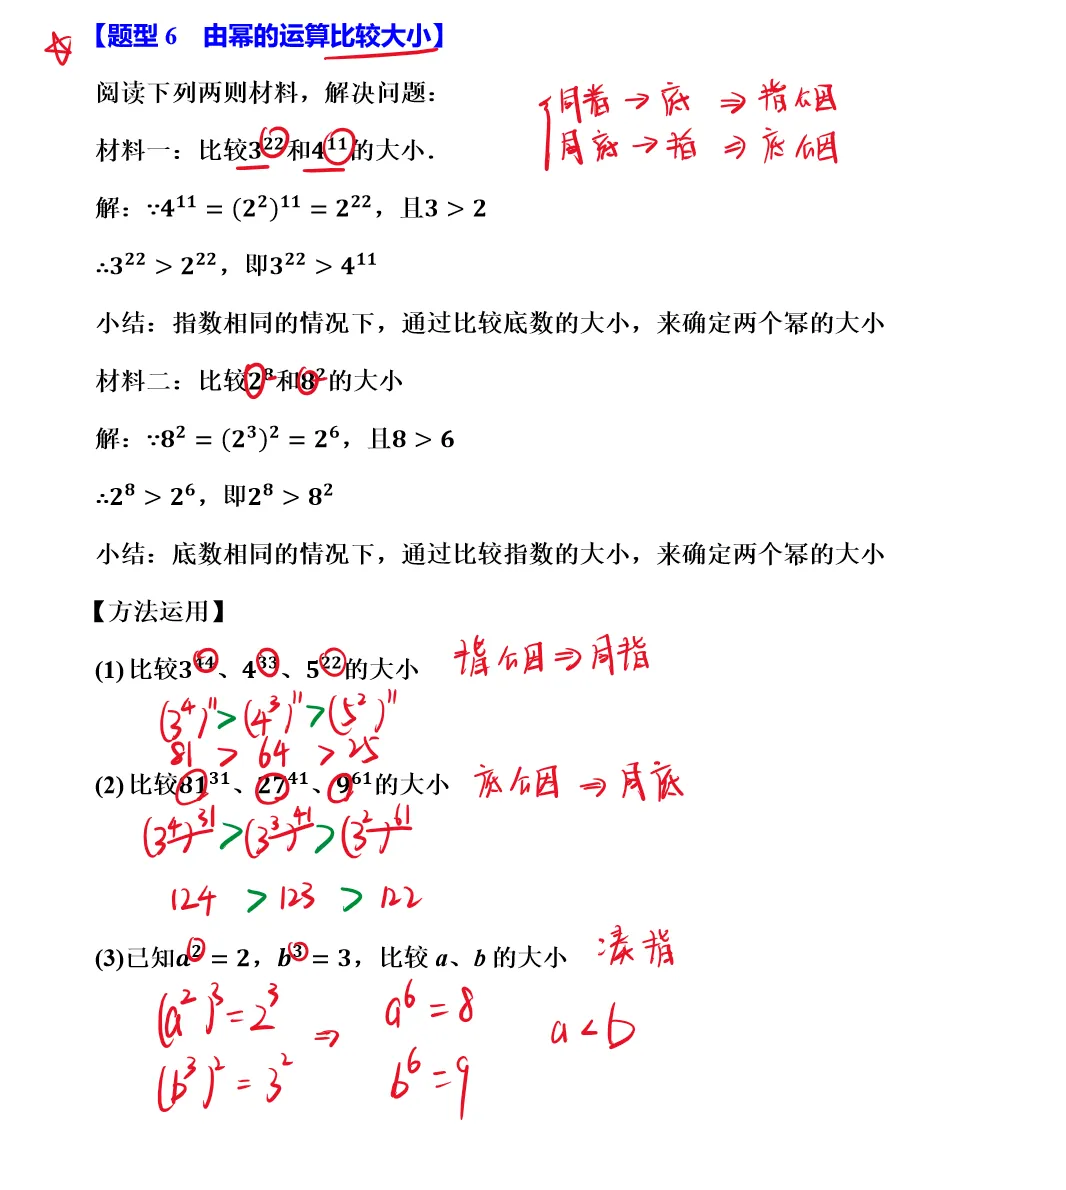 【题型 6 由幂的运算比较大小】
阅读下列两则材料，解决问题：
同指 → 底 ⇒ 指公因
材料一：比较3²²和4¹¹的大小．
同底 → 指 ⇒ 底公因
解：∵4¹¹ = (2²)¹¹ = 2²²，且3 > 2
∴3²² > 2²²，即3²² > 4¹¹
小结：指数相同的情况下，通过比较底数的大小，来确定两个幂的大小
材料二：比较2⁸和8²的大小
解：∵8² = (2³)² = 2⁶，且8 > 6
∴2⁸ > 2⁶，即2⁸ > 8²
小结：底数相同的情况下，通过比较指数的大小，来确定两个幂的大小
【方法运用】
(1) 比较3⁴⁴、4³³、5²²的大小 指公因 ⇒ 同指
(3⁴)¹¹ > (4³)¹¹ > (5²)¹¹
81 > 64 > 25
(2) 比较81³¹、27⁴¹、9⁶¹的大小 底公因 ⇒ 同底
(3⁴)³¹ > (3³)⁴¹ > (3²)⁶¹
124 > 123 > 122
(3)已知a² = 2，b³ = 3，比较 a、b 的大小 凑指
(a²)³ = 2³ ⇒ a⁶ = 8 a < b
(b³)² = 3² b⁶ = 9